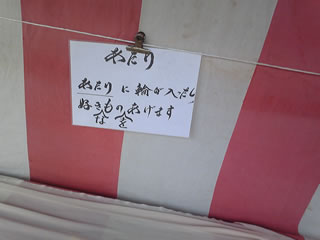 あたり
あたりに輪が入たら
好きものあげます
な を